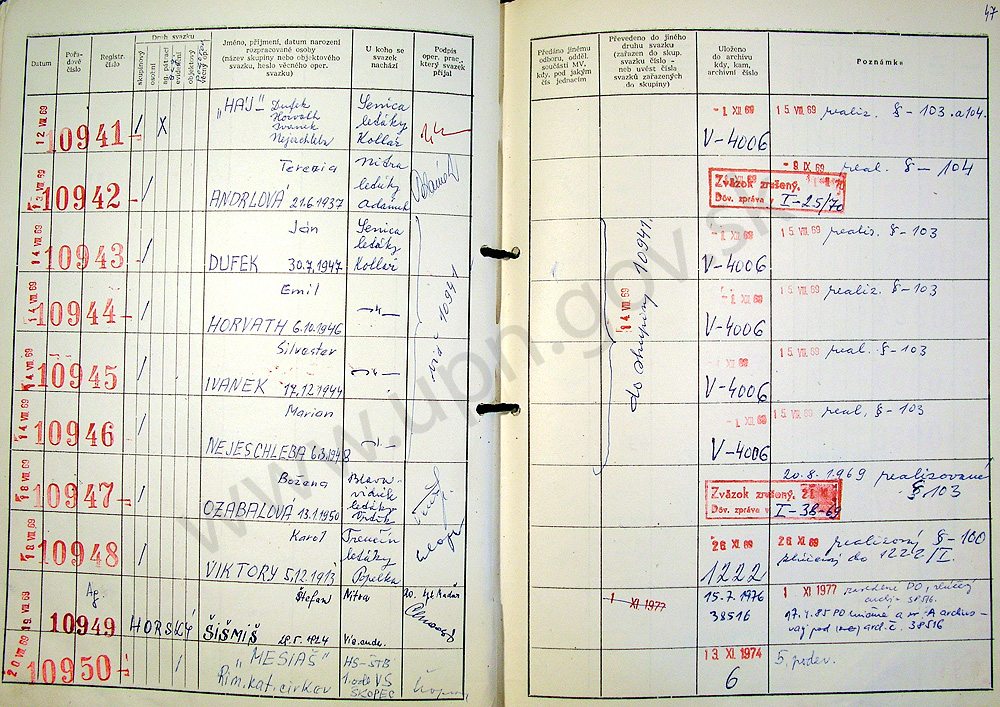 47
Datum
Pořadové číslo
Registr. číslo
Druh svazku
skupinový
osobní
objektový
Jméno, příjmení, datum narození
rozpracované osoby
(název skupiny nebo objektového
svazku, heslo všeho oper.
svazku)
U koho se
svazek
nachází
Podpis
oper. prac.,
který svazek
přijal
Předáno jinému
odboru, odděl.
součásti MV.
kdy, pod jakým
čís jednacím
Převedeno do jiného
druhu svazku
(zařazen do skup.
svazku číslo -
neb uvést čísla
svazků zařazených
do skupiny)
Uloženo
do archivu
kdy, kam,
archivní číslo
Poznámka
12 VIII. 69 10941 / X
"HÁJ" Dufek
Horváth
Ivanek
Nejeschleba
Senica
letáky
Kollár
- 1 XII 69
V-4006
15 VIII. 69 realiz. § - 103 a 104.
13 VIII. 69 10942 /
Terezia
ANDRLOVÁ 21.6.1937
Nitra
letáky
Adámek
Zväzok zrušený.
Dův. zpráva v I-25/70
- 9 IX. 69 real. § - 104
14 VIII. 69 10943 /
Ján
DUFEK 30.7.1947
Senica
letáky
Kollár
viď 10941
14 VIII. 69
do skupiny 10941.
- 1 XII 69
V-4006
15 VIII. 69 realiz. § - 103
14 VIII. 69 10944 /
Emil
HORVATH 6.10.1946
-"-
- 1. XII 69
V-4006
15 VIII. 69 realiz. § - 103
14 VIII. 69 10945 /
Silvester
IVANEK 17.12.1944
-"-
- 1 XII 69
V-4006
15 VIII. 69 real. § - 103
14 VIII. 69 10946 /
Marian
NEJESCHLEBA 6.3.1948
-"-
- 1 XII 69
V-4006
15 VIII. 69 real. § - 103
18 VIII. 69 10947 /
Božena
OZABALOVÁ 13.1.1950
letáky
Zväzok zrušený.
Dův. zpráva v I-38-69
20.8.1969 realizované
§ 103
18 VIII. 69 10948 /
Karol
VIKTORY 5.12.1913
Trenčín
letáky
Popelka
26 XI 69
1222
26 XI. 69 realizovaný § - 100
1222/I.
19 VIII. 69 10949
Ag.
HORSKÝ
Štefan
ŠIŠMIŠ 28.5.1924
Nitra
1 XI 1977
15.7.1976
38516
1 XI 1977
17.4.85
38516
20 VIII. 69 10950 /
"MESIÁŠ"
Rím. kat. cirkev
HS-ŠTB
1. odd VS
SKOPEC
13 XI 1974
6
www.upn.gov.sk